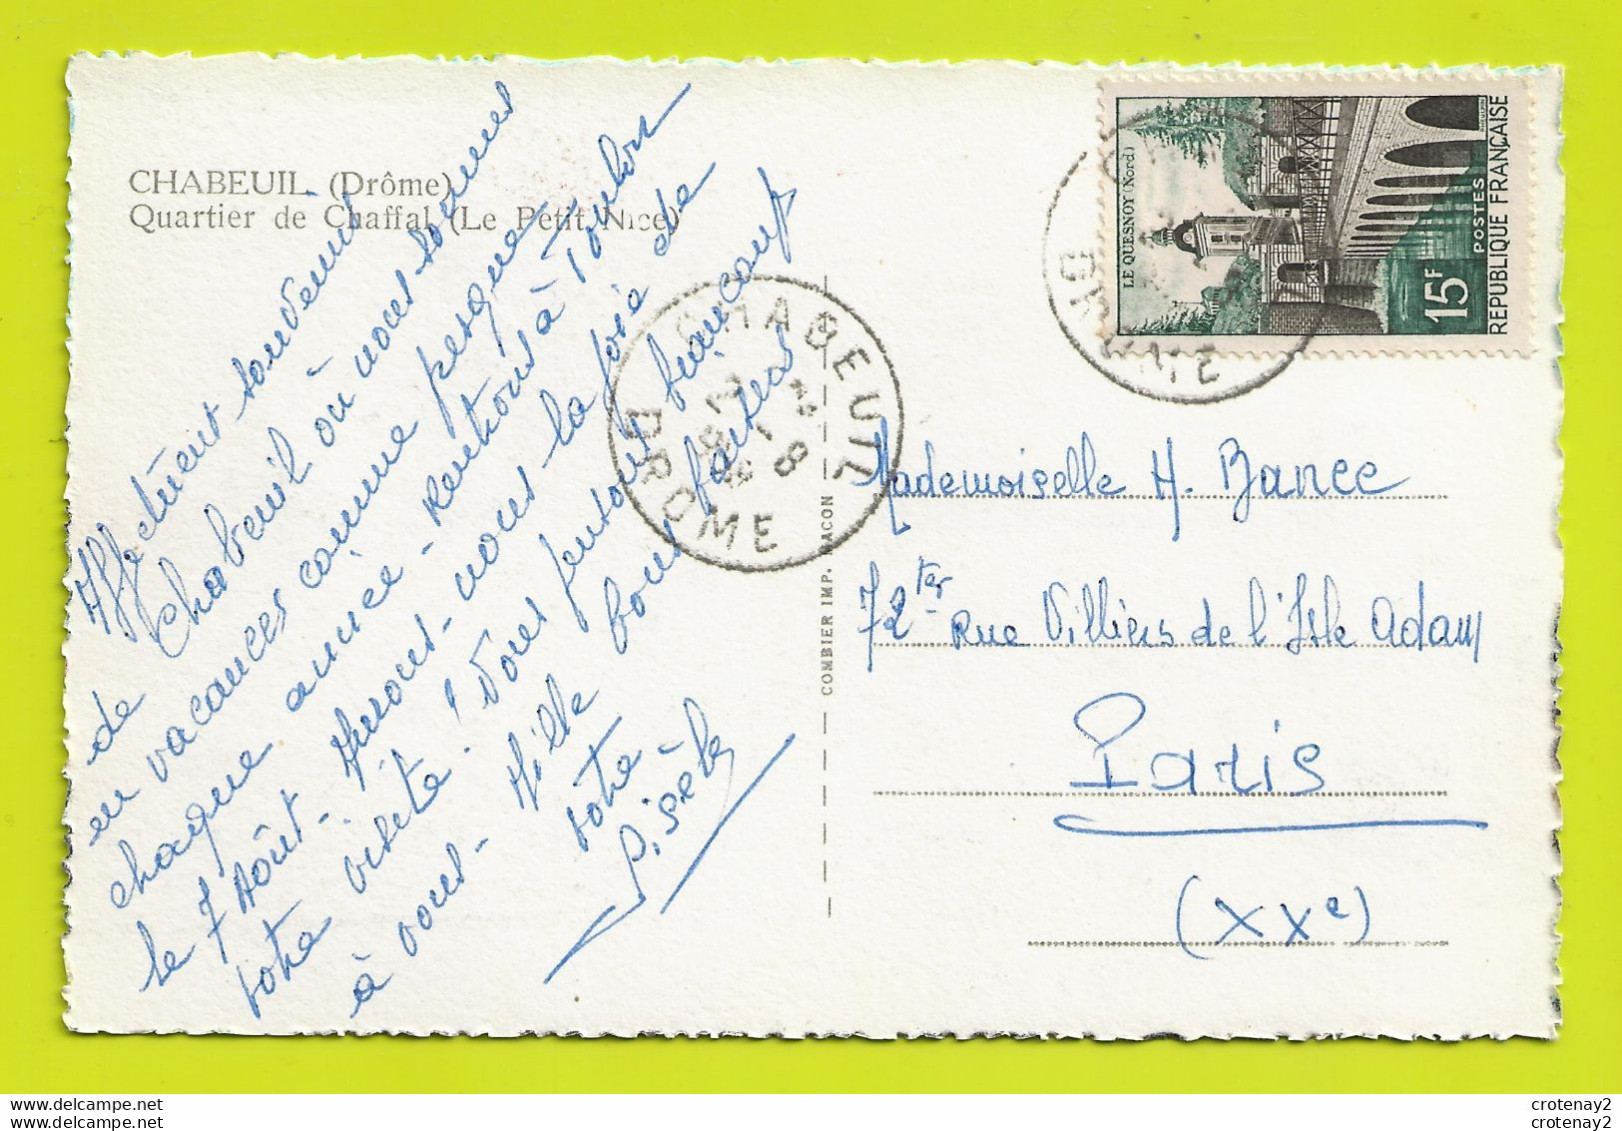 CHABEUIL (Drôme)
Quartier de Chaffal (Le Petit Nice)
Affectueux souvenir
de Chabeuil où nous sommes
en vacances comme presque
chaque année - Rentrons à Toulon
le 7 Août - Aurons-nous la joie de
votre visite! Nous pensons beaucoup
à vous - Mille bons baisers
votre
CHABEUIL
DROME
COMBIER IMP. MACON
LE QUESNOY (Nord)
15F
POSTES
REPUBLIQUE FRANÇAISE
DROME
Mademoiselle H. Bance
72ter Rue Villiers de l'Isle Adam
Paris
(XXe)
www.delcampe.net
www.delcampe.net
crotenay2
crotenay2